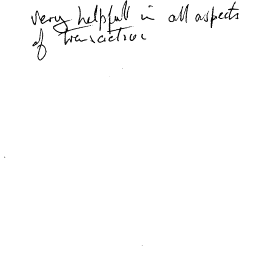 very helpfull in all aspects
of transaction